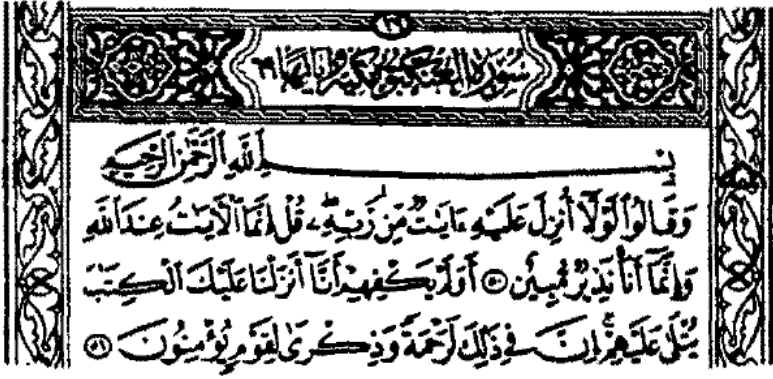 ٢٩
سُورَةُ العَنكَبُوتِ مَكِّيَّة وَآيَاتُهَا ٦٩
بِسْمِ ٱللَّهِ ٱلرَّحْمَٰنِ ٱلرَّحِيمِ
وَقَالُوا۟ لَوْلَآ أُنزِلَ عَلَيْهِ ءَايَٰتٌ مِّن رَّبِّهِۦ ۖ قُلْ إِنَّمَا ٱلْءَايَٰتُ عِندَ ٱللَّهِ
وَإِنَّمَآ أَنَا۠ نَذِيرٌ مُّبِينٌ ٥٠ أَوَلَمْ يَكْفِهِمْ أَنَّآ أَنزَلْنَا عَلَيْكَ ٱلْكِتَٰبَ
يُتْلَىٰ عَلَيْهِمْ ۚ إِنَّ فِى ذَٰلِكَ لَرَحْمَةً وَذِكْرَىٰ لِقَوْمٍ يُؤْمِنُونَ ٥١